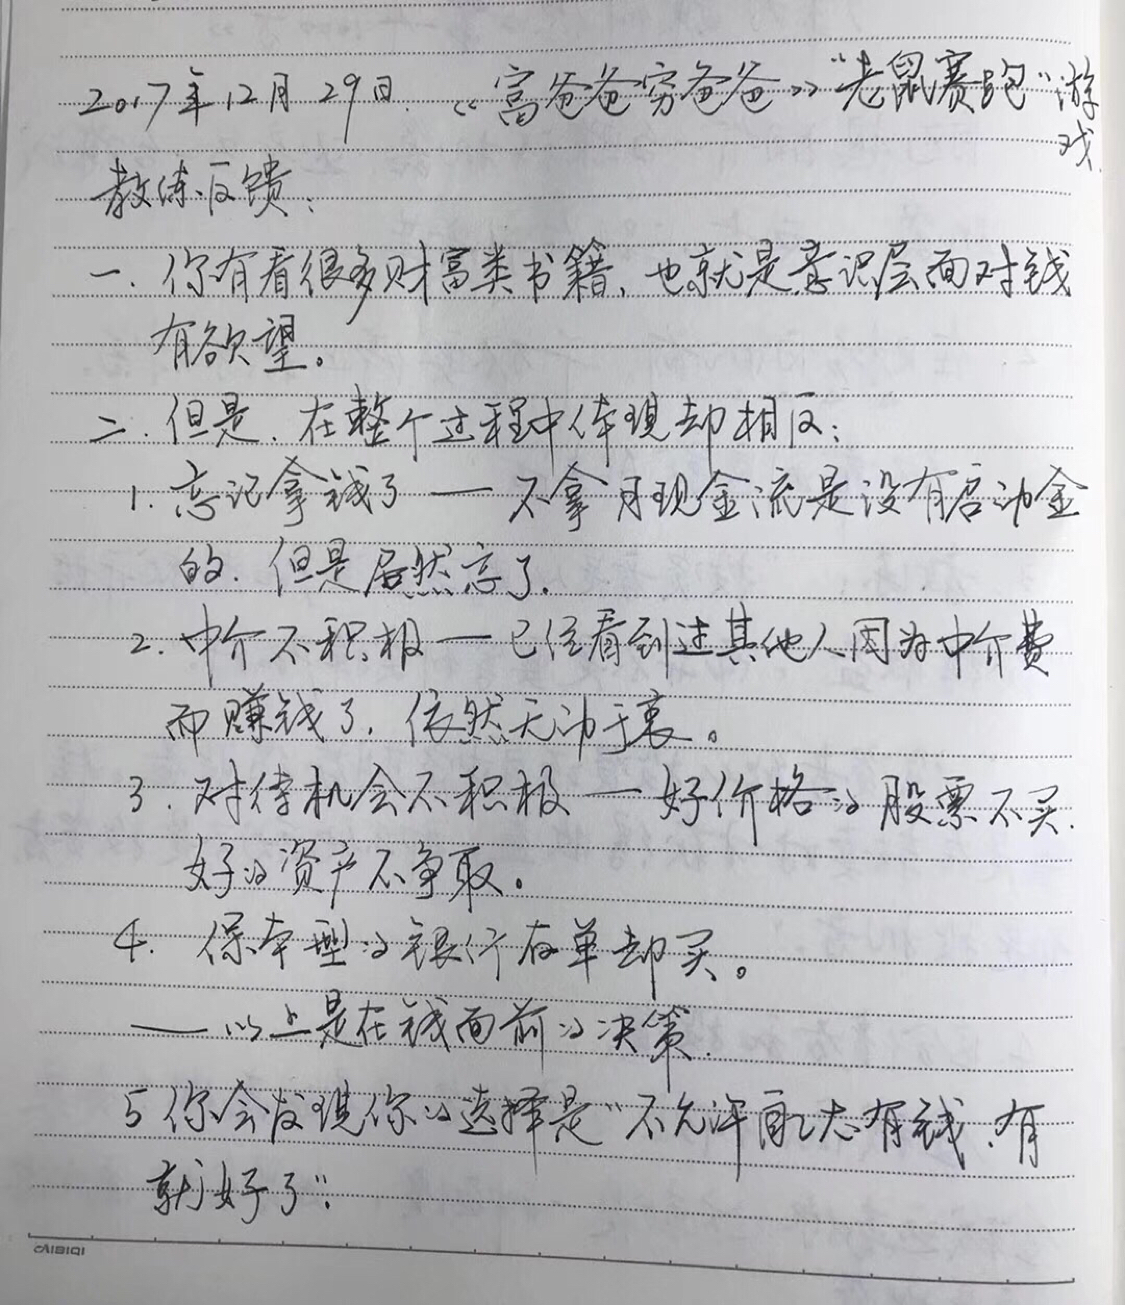 2017年12月29日.《富爸爸穷爸爸》“老鼠赛跑”游
戏
教练反馈:
一.你有看很多财富类书籍,也就是意识层面对钱
有欲望。
二.但是.在整个过程中体现却相反:
1.忘记拿钱了——不拿月现金流是没有启动金
的.但是居然忘了.
2.中介不积极—已经看到过其他人因为中介费
而赚钱了,依然无动于衷。
3.对待机会不积极—好价格的股票不买.
好的资产不争取。
4.保本型的银行存单却买。
——以上是在钱面前的决策.
5你会发现你的选择是“不允许自己太有钱、有
就好了”.
CAIBIQI